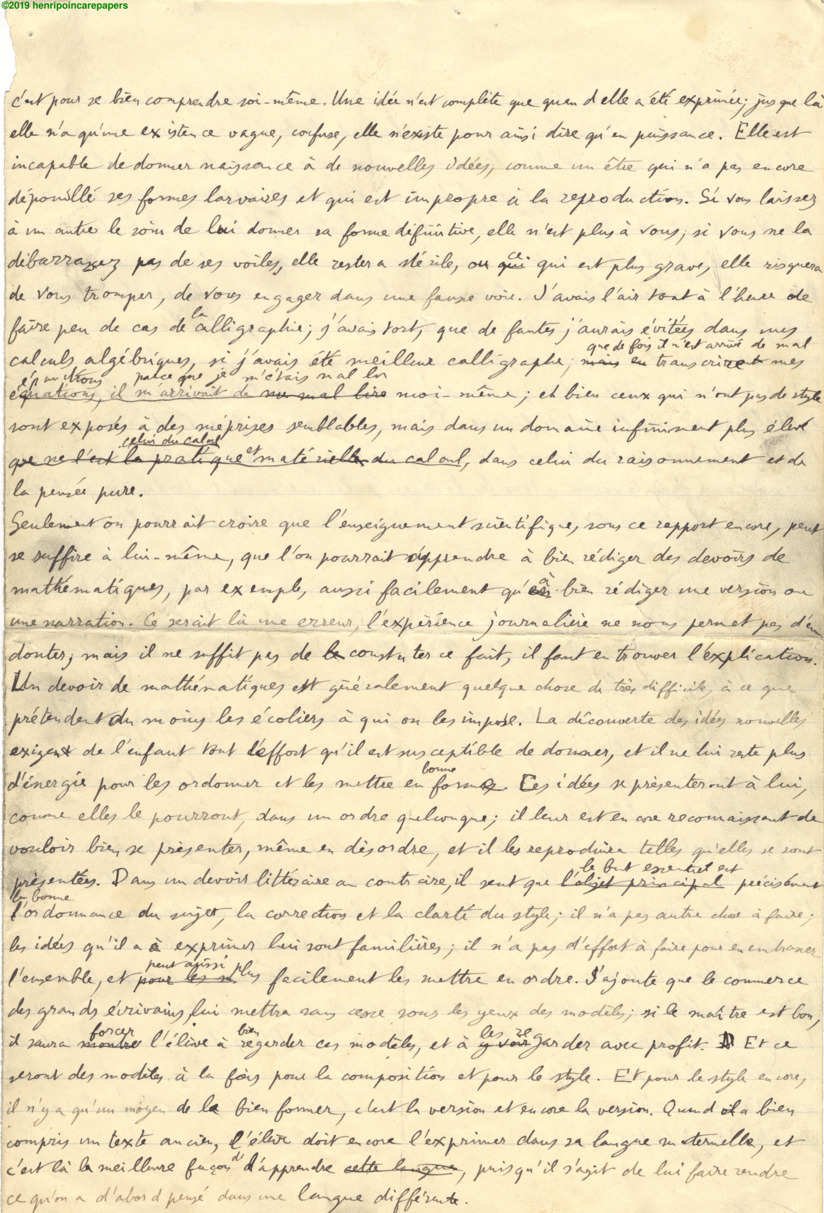 ©2019 henripoincarepapers
c'est pour se bien comprendre soi-même. Une idée n'est complète que quand elle a été exprimée; jusque là
elle n'a qu'une existence vague, confuse, elle n'existe pour ainsi dire qu'en puissance. Elle est
incapable de donner naissance à de nouvelles idées, comme un être qui n'a pas encore
dépouillé ses formes larvaires et qui est impropre à la reproduction. Si vous laissez
à un autre le soin de lui donner sa forme définitive, elle n'est plus à vous; si vous ne la
débarrassez pas de ses voiles, elle restera stérile, ou ce qui est plus grave, elle risquera
de vous tromper, de vous engager dans une fausse voie. J'avais l'air tout à l'heure de
faire peu de cas de la calligraphie; j'avais tort, que de fautes j'aurais évitées dans mes
calculs algébriques, si j'avais été meilleur calligraphe; que de fois il m'est arrivé de mal
mais en transcrire mes
épuations parce que je m'étais mal lu
équations, il m'arrivait de me mal lire moi-même; eh bien ceux qui n'ont pas de style
sont exposés à des méprises semblables, mais dans un domaine infiniment plus élevé
celui du calcul
que ne l'est la pratique et matérielle du calcul, dans celui du raisonnement et de
la pensée pure.
Seulement on pourrait croire que l'enseignement scientifique, sous ce rapport encore, peut
se suffire à lui-même, que l'on pourrait apprendre à bien rédiger des devoirs de
mathématiques, par exemple, aussi facilement qu'à bien rédiger une version ou
une narration. Ce serait là une erreur, l'expérience journalière ne nous permet pas d'en
douter; mais il ne suffit pas de constater ce fait, il faut en trouver l'explication.
Un devoir de mathématiques est généralement quelque chose de très difficile, à ce que
prétendent du moins les écoliers à qui on les impose. La découverte des idées nouvelles
exigent de l'enfant tout l'effort qu'il est susceptible de donner, et il ne lui reste plus
d'énergie pour les ordonner et les mettre en bonne forme. Ces idées se présenteront à lui,
comme elles le pourront, dans un ordre quelconque; il leur est encore reconnaissant de
vouloir bien se présenter, même en désordre, et il les reproduira telles qu'elles se sont
le but essentiel est
présentées. Dans un devoir littéraire au contraire, il sent que l'objet principal précisément
la bonne
l'ordonnance du sujet, la correction et la clarté du style; il n'a pas autre chose à faire;
les idées qu'il a à exprimer lui sont familières; il n'a pas d'effort à faire pour en embrasser
peut aussi
l'ensemble, et pour les plus facilement les mettre en ordre. J'ajoute que le commerce
des grands écrivains lui mettra sans cesse sous les yeux des modèles; si le maître est bon,
forcer bien les re
il saura montre l'élève à regarder ces modèles, et à y voir garder avec profit. Et ce
seront des modèles à la fois pour la composition et pour le style. Et pour le style encore,
il n'y a qu'un moyen de le bien former, c'est la version et encore la version. Quand il a bien
compris un texte ancien, l'élève doit encore l'exprimer dans sa langue maternelle, et
c'est là la meilleure façon d'apprendre cette langue, puisqu'il s'agit de lui faire rendre
ce qu'on a d'abord pensé dans une langue différente.